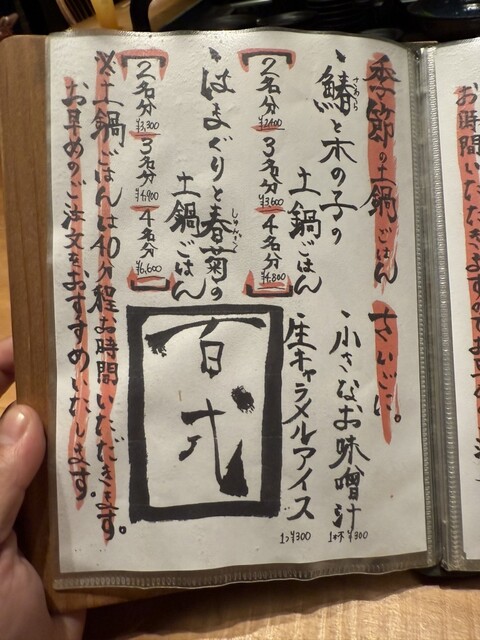 季節の土鍋ごはん
・鰆と木の子の
さわら
土鍋ごはん
2名分 ¥2400 3名分 ¥3,600 4名分 ¥4,800
・はまぐりと春菊の
しゅんぎく
土鍋ごはん
2名分 ¥3,300 3名分 ¥4,900 4名分 ¥6,600
※土鍋ごはんは40分程お時間いただきます。
お早めのご注文をおすすめいたします。
さいごに。
・小さなお味噌汁
1杯 ¥300
・生キャラメルアイス
1つ ¥300
お時間いただきますので